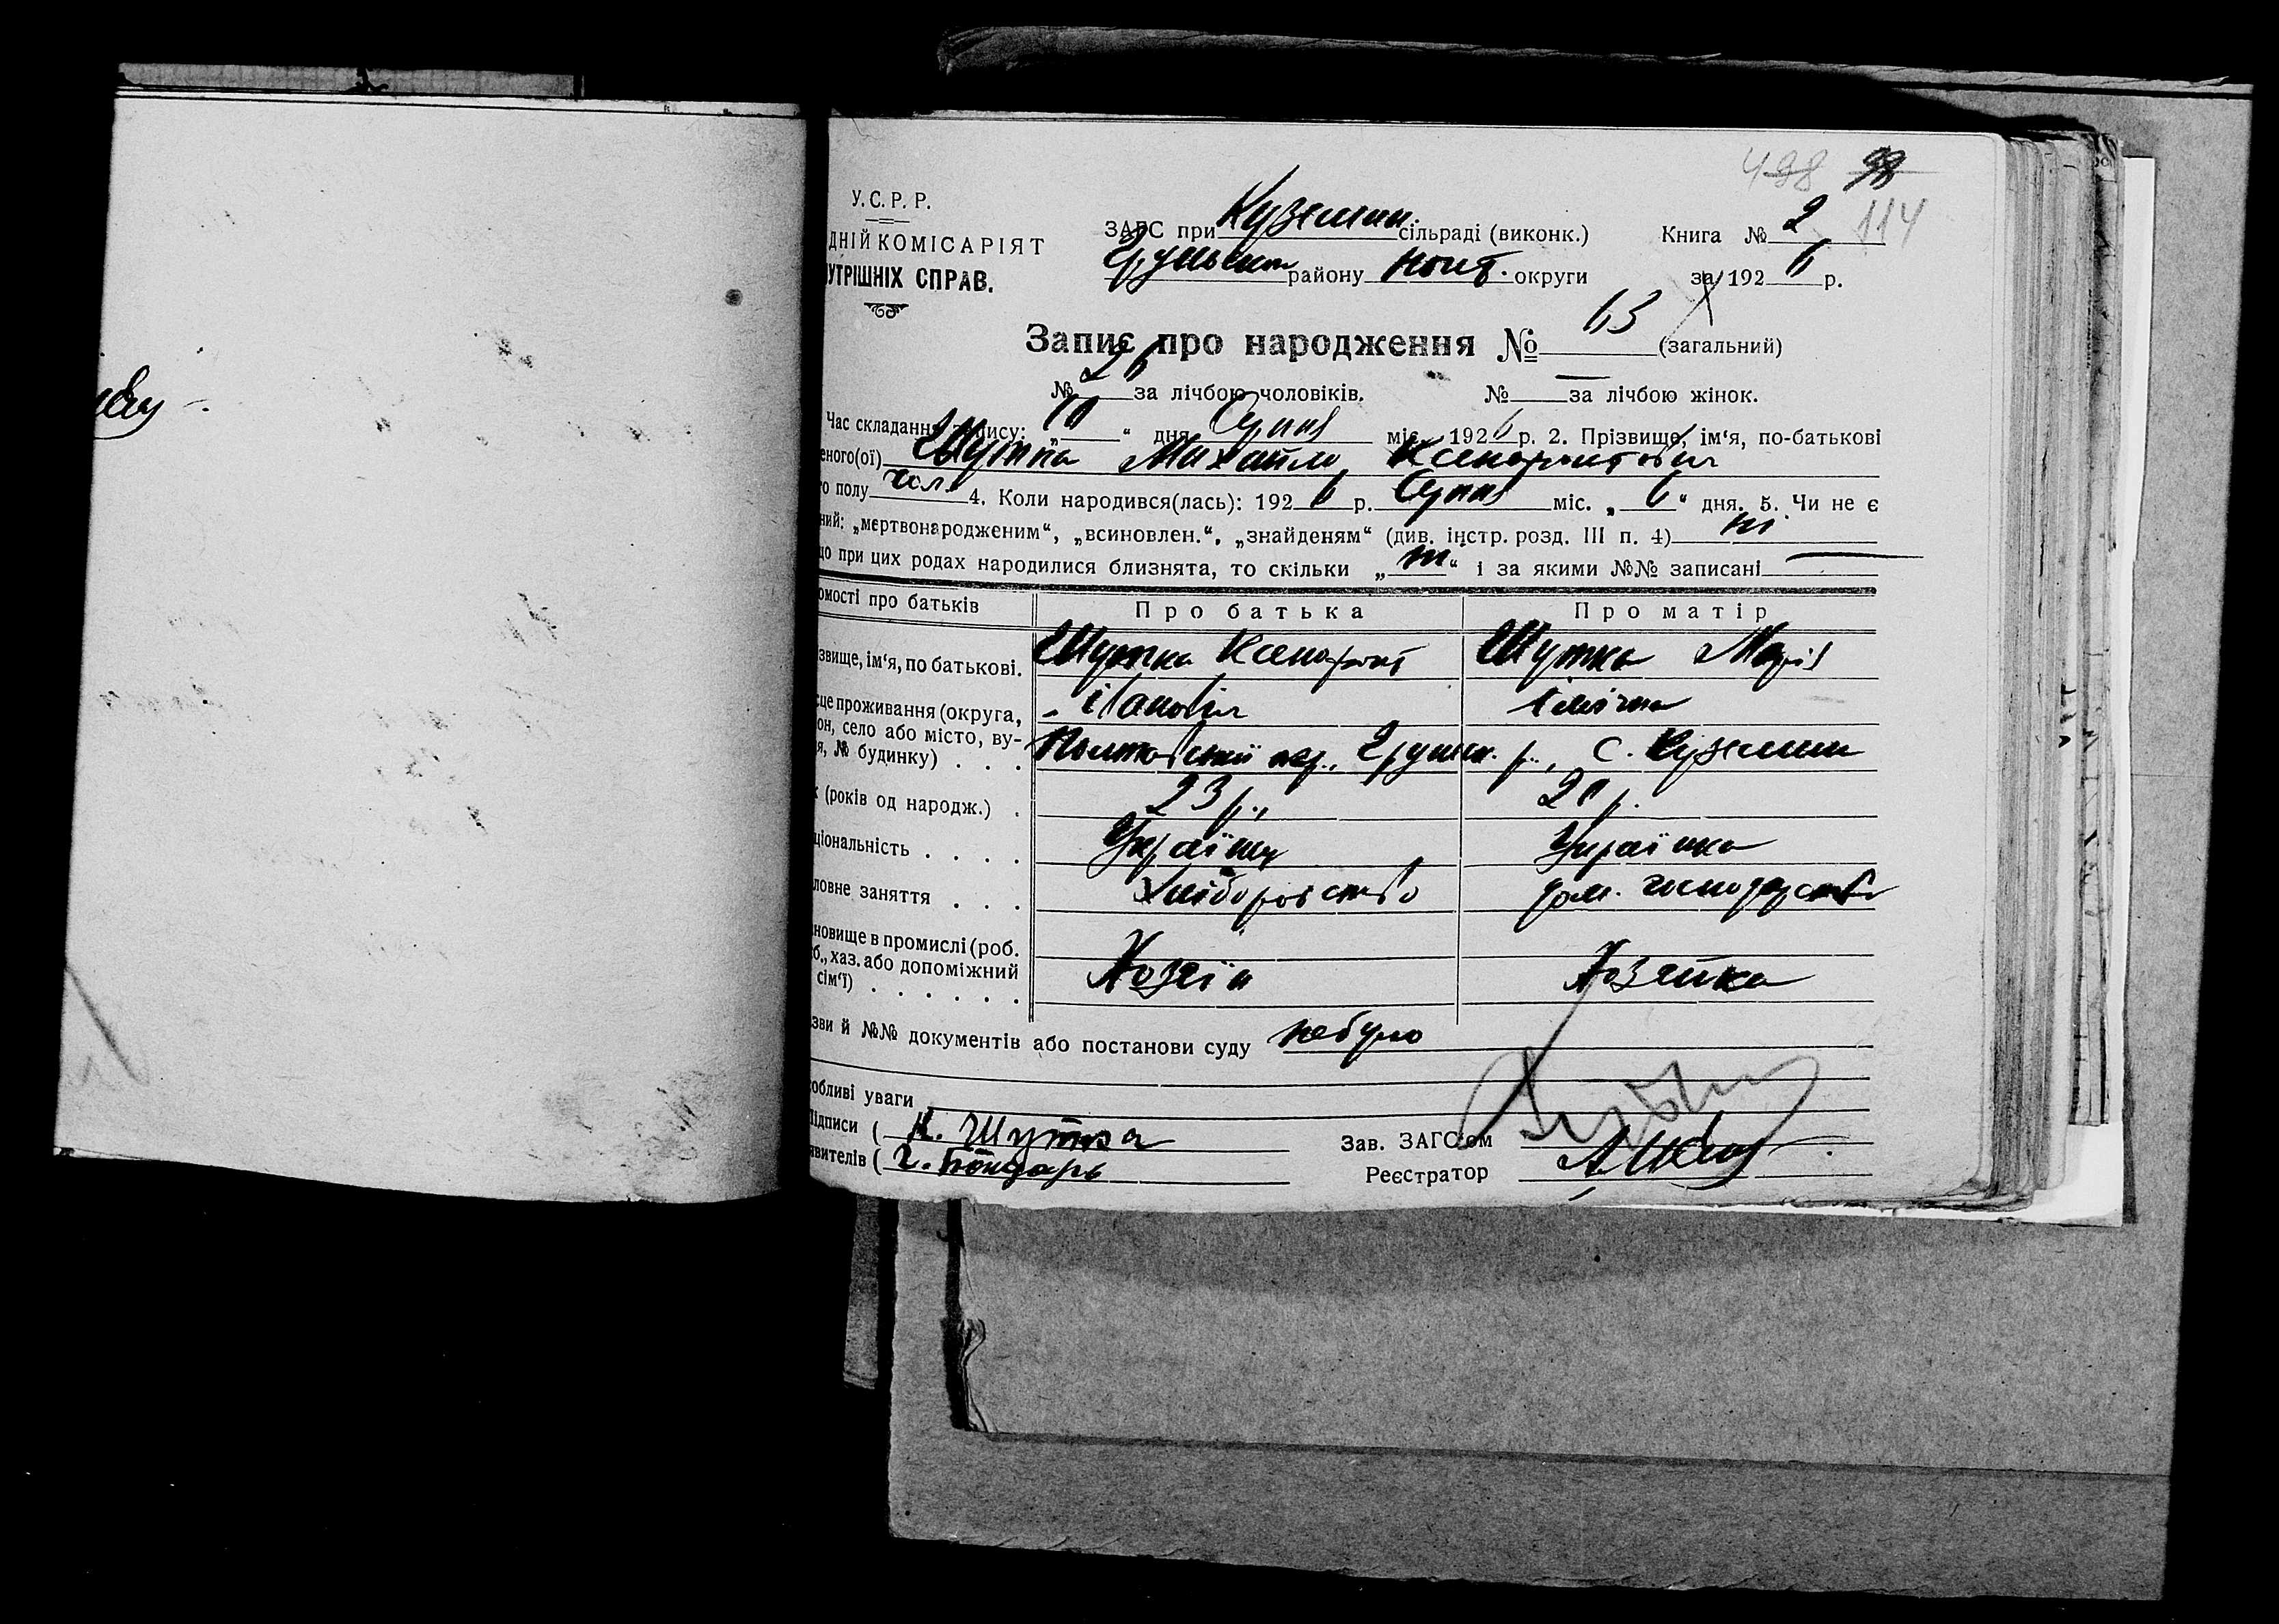 498 98
У.С.Р.Р.
ЗАГС при Куземин. сільраді (виконк.) Книга № 2 114
ДНІЙ КОМІСАРІЯТ
Грунськ району Полт. округи за 1926 р.
УТРІШНІХ СПРАВ.
Запис про народження № 63 (загальний)
№ 26 за лічбою чоловіків. № — за лічбою жінок.
Час складання запису: „10“ дня Серпня міс. 1926 р. 2. Прізвище, ім‘я, по-батькові
еного(ої) Шутка Михайло Ксенофонтович
го полу чол. 4. Коли народився(лась): 1926 р. Серпня міс. „6“ дня. 5. Чи не є
ний: „мертвонародженим“, „всиновлен.“, „знайденям“ (див. інстр. розд. III п. 4) ні
що при цих родах народилися близнята, то скільки „ні“ і за якими №№ записані —
омості про батьків Про батька Про матір
звище, ім‘я, по батькові. Шутка Ксенофонт Шутка Марія
сце проживання (округа, Іванович
он, село або місто, ву-
я, № будинку) . . . Полтавської окр., Грунськ. р., с. Куземин
к (років од народж.) . 23 р., 20 р.
ціональність . . . . Українец Українка
ловне заняття . . . Хліборобство дом. господарство
новище в промислі (роб.
б., хаз. або допоміжний
сім‘ї) . . . . . . Хозяїн Хозяйка
зви й №№ документів або постанови суду небуло
собливі уваги
Підписи ( К. Шутка Зав. ЗАГС‘ом
явителів ( Г. Бондарь Реєстратор